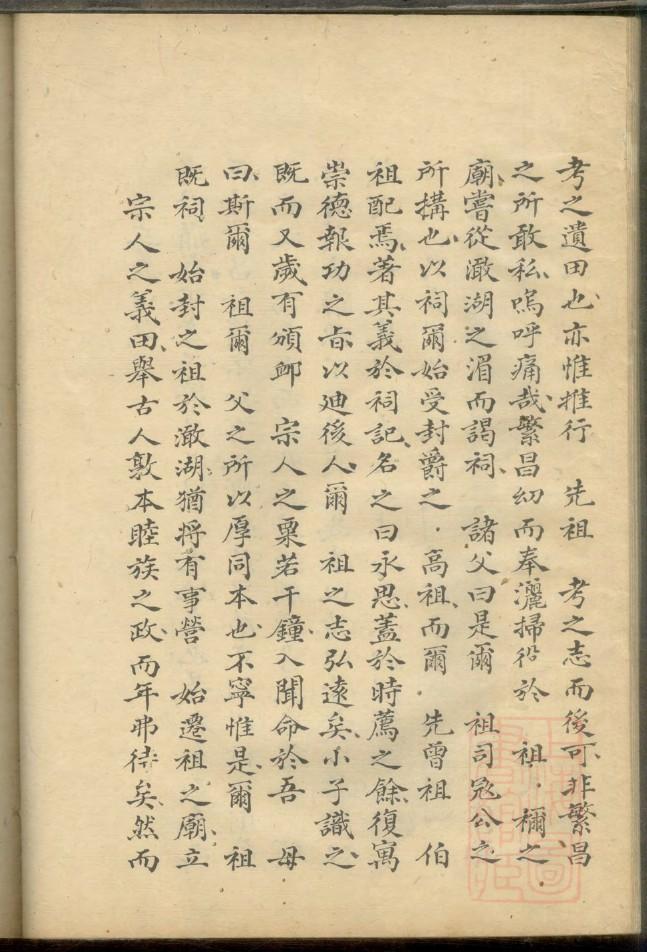 考之遺田也亦惟推行　先祖　考之志而後可非繁昌
之所敢私嗚呼痛哉繁昌幼而奉灑掃役於　祖禰之
廟嘗從澉湖之湄而謁祠　諸父曰是爾　祖司寇公之
所搆也以祠爾始受封爵之　高祖而爾　先曾祖　伯
祖配焉著其義於祠記名之曰永思蓋於時薦之餘復寓
崇德報功之旨以迪後人爾　祖之志弘遠矣小子識之
既而又歲有頒卹　宗人之粟若干鐘入聞命於吾　母
曰斯爾　祖爾　父之所以厚同本也不寧惟是爾　祖
既祠　始封之祖於澉湖猶將有事營　始遷祖之廟立
宗人之義田舉古人敦本睦族之政而年弗待矣然而